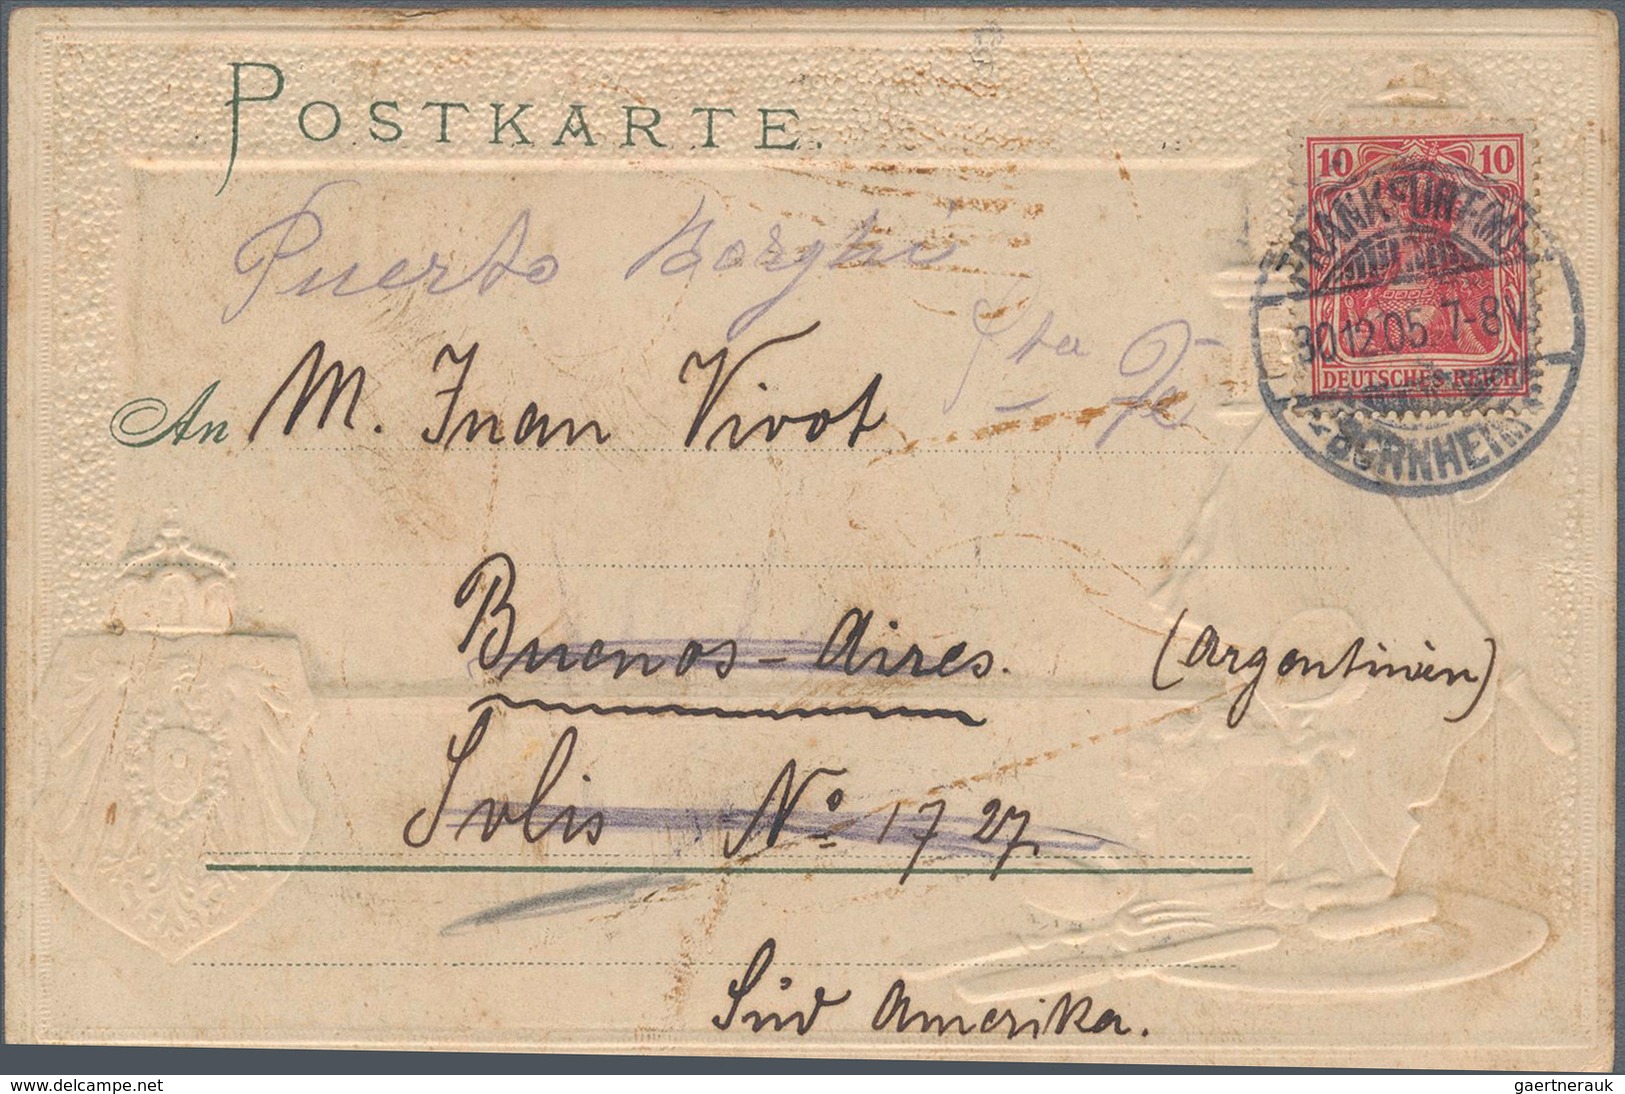 POSTKARTE.
10 10
FRANKFURT (MAIN)
30.12.05. 7-8 V.
DEUTSCHES REICH
BORNHEIM
Puerto Borghi
Sta Fe
An M. Juan Vivot
Buenos-Aires. (Argentinien)
Solis Nº 1727.
Süd Amerika.
www.delcampe.net
gaertnerauk